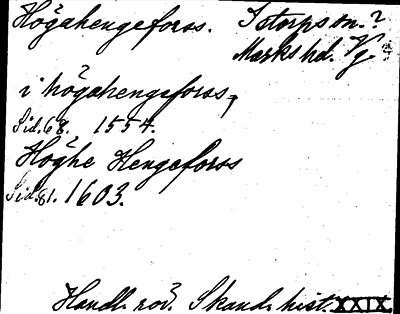 Högahengefoross. Istorps sn.?
Marks hd. Vg.
i högahengefoross,
Sid. 68. 1554.
Höghe Hengefoross
Sid. 81. 1603.
Handl. rör. Skand. hist. XXIX